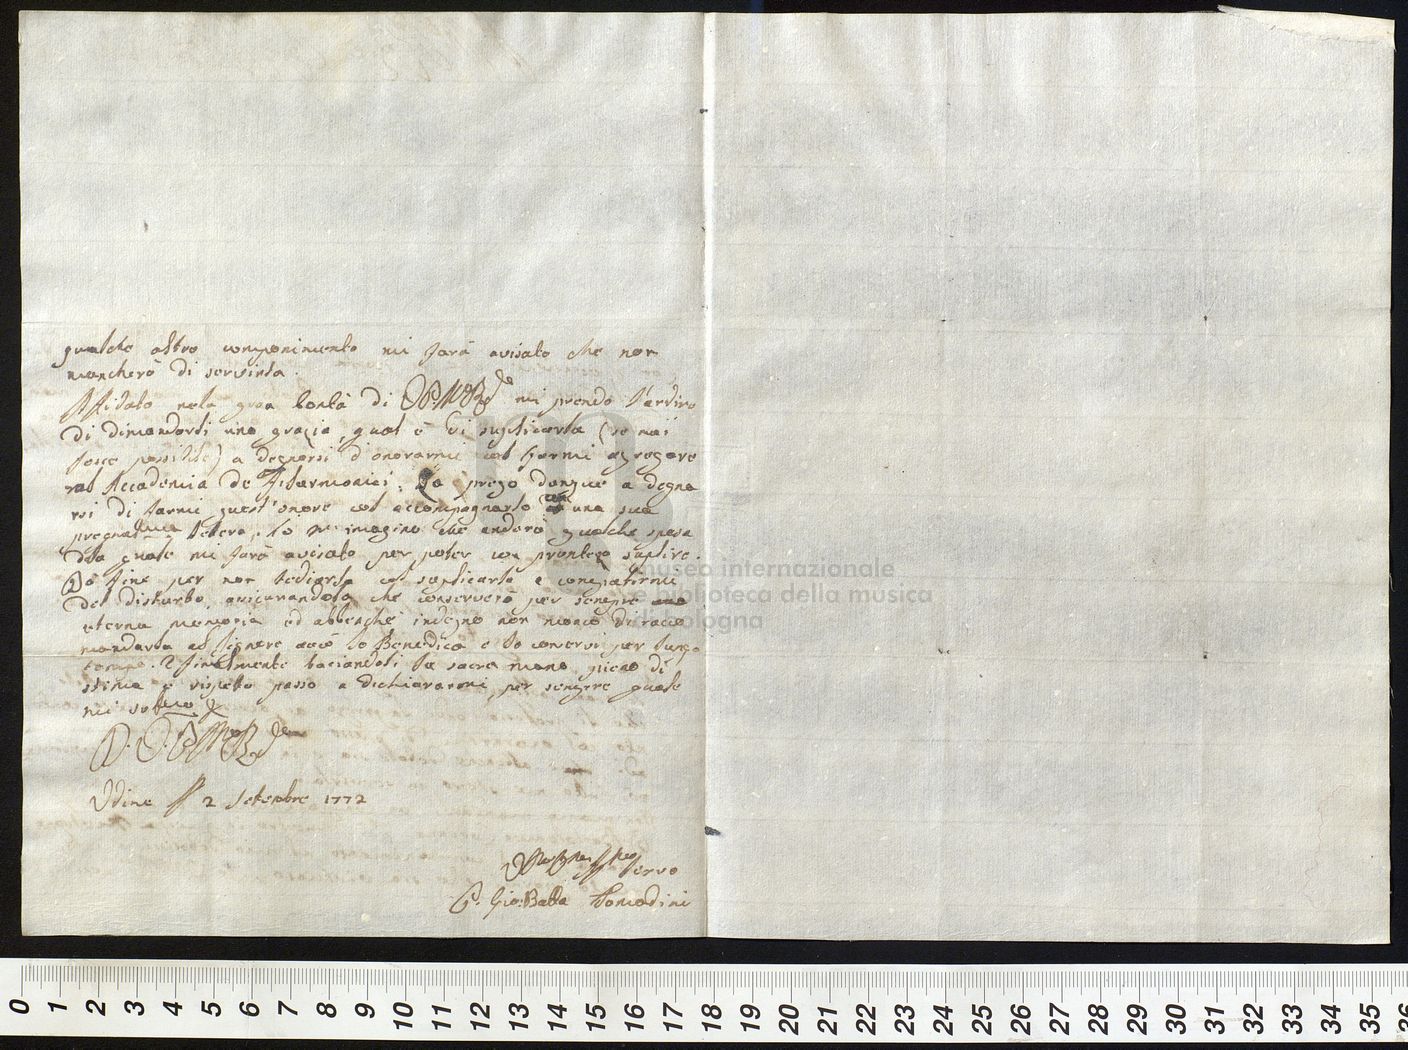 qualche altro componimento mi farà avisato che non
mancherò di servirla.
Affidato nela gran bontà di V. P. M. R.da mi prendo l'ardire
di dimandarli una grazia, qual è di suplicarla (se mai
fosse possibile) a degnarsi d'onorarmi col farmi agregare
nal Accademia de Filarmonici. La prego donque a degna
rsi di farmi quest'onore col accompagnarlo con una sua
pregiatma letera. Io m'imagino che anderà qualche spesa
dila quale mi farà avisato per poter con pronteza suplire.
Do fine per non tediarla col suplicarla a compatirmi
del disturbo, asicurandola che conserverò per sempre
eterna memoria ed abbenchè indegno non manco di racco
mandarla al Signore acciò lo Benedica e lo conservi per lungo
tempo. Finalmente baciandoli la sacra mano, pieno di
stima e rispetto passo a dichiararmi, per sempre quale
mi sotto
D. V. P. M. R.da
Udine 2 Setembre 1772
Servo
P. Gio: Batta Tomadini
museo internazionale
e biblioteca della musica
di bologna
0 1 2 3 4 5 6 7 8 9 10 11 12 13 14 15 16 17 18 19 20 21 22 23 24 25 26 27 28 29 30 31 32 33 34 35 36